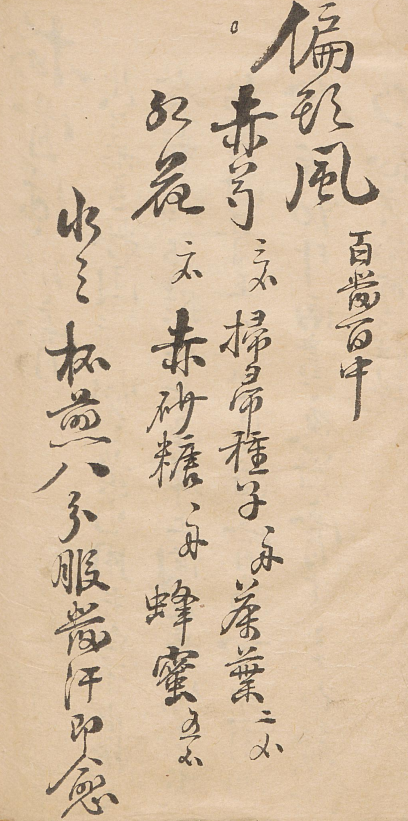 偏頭風 百發百中
赤芍三錢掃帚種子一兩茶葉二錢
紅花二錢赤砂糖一兩蜂蜜五錢
水三杯煎八分服發汗即愈